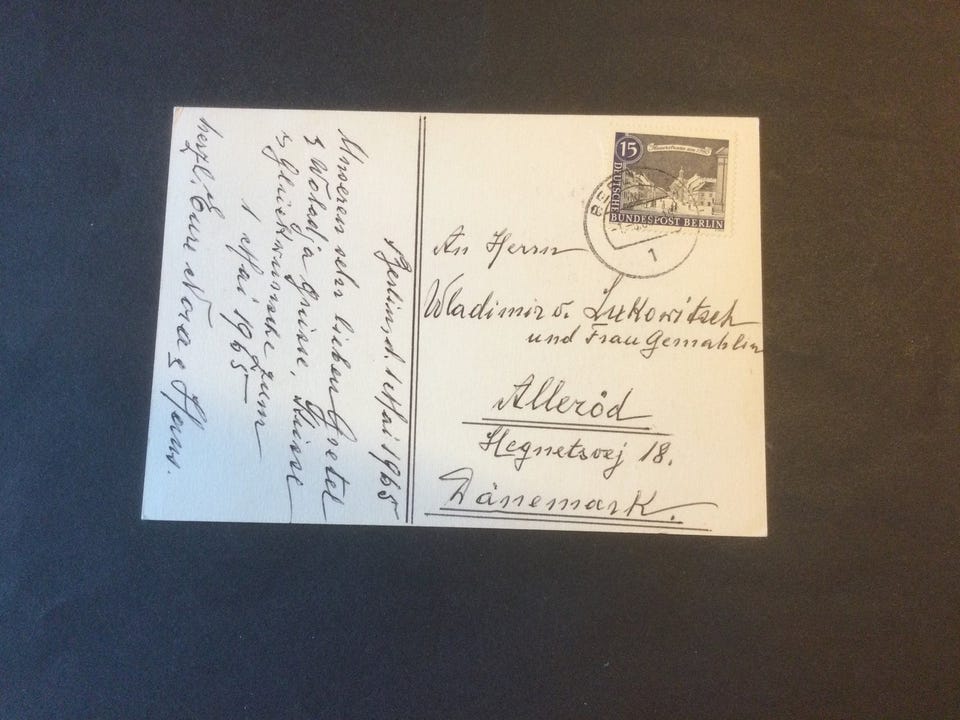 Berlin, d. 1 Mai 1965
Unseren sehr lieben Gretel
& Wolodja Grüsse, Küsse
& Glückwünsche zum
1 Mai 1965
herzl. Eure Nora & Hans.
15
DEUTSCHE
BUNDESPOST BERLIN
1
An Herrn
Wladimir v. Lukowitsch
und Frau Gemahlin
Alleröd
Hegnetsvej 18.
Dänemark.